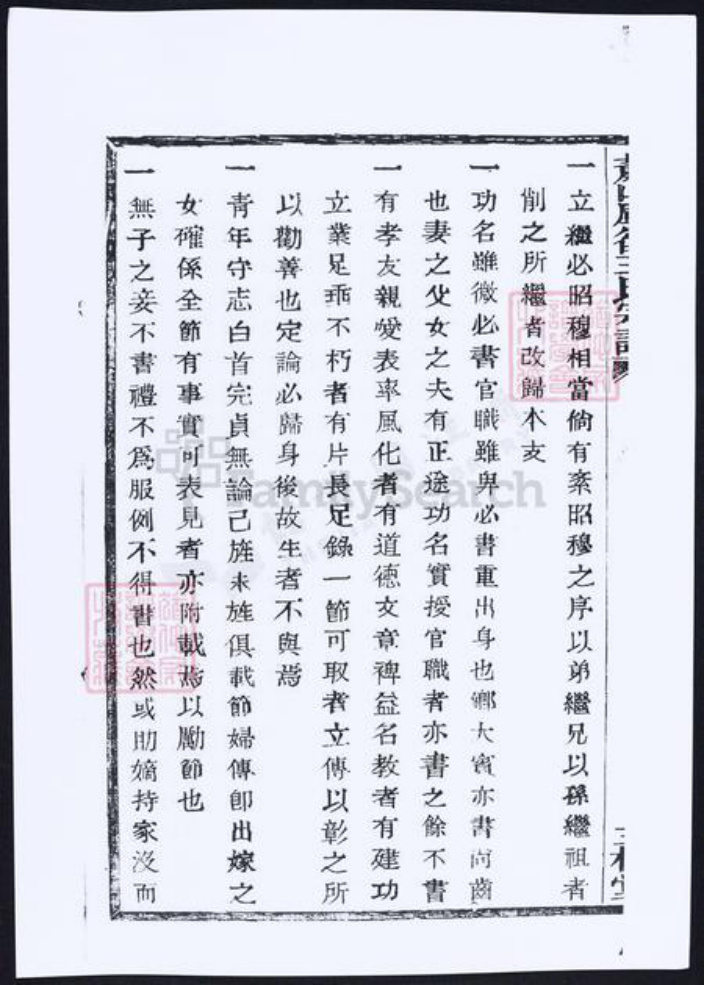 一立繼必昭穆相當倘有紊昭穆之序以弟繼兄以孫繼祖者
削之所繼者改歸本支
一功名雖微必書官職雖卑必書重出身也鄉大賓亦書尚齒
也妻之父女之夫有正途功名實授官職者亦書之餘不書
一有孝友親愛表率風化者有道德文章裨益名教者有建功
立業足垂不朽者有片長足錄一節可取者立傳以彰之所
以勸善也定論必歸身後故生者不與焉
一青年守志白首完貞無論已旌未旌俱載節婦傳卽出嫁之
女確係全節有事實可表見者亦附載焉以勵節也
一無子之妾不書禮不爲服例不得書也然或助嫡持家沒而
FamilySearch